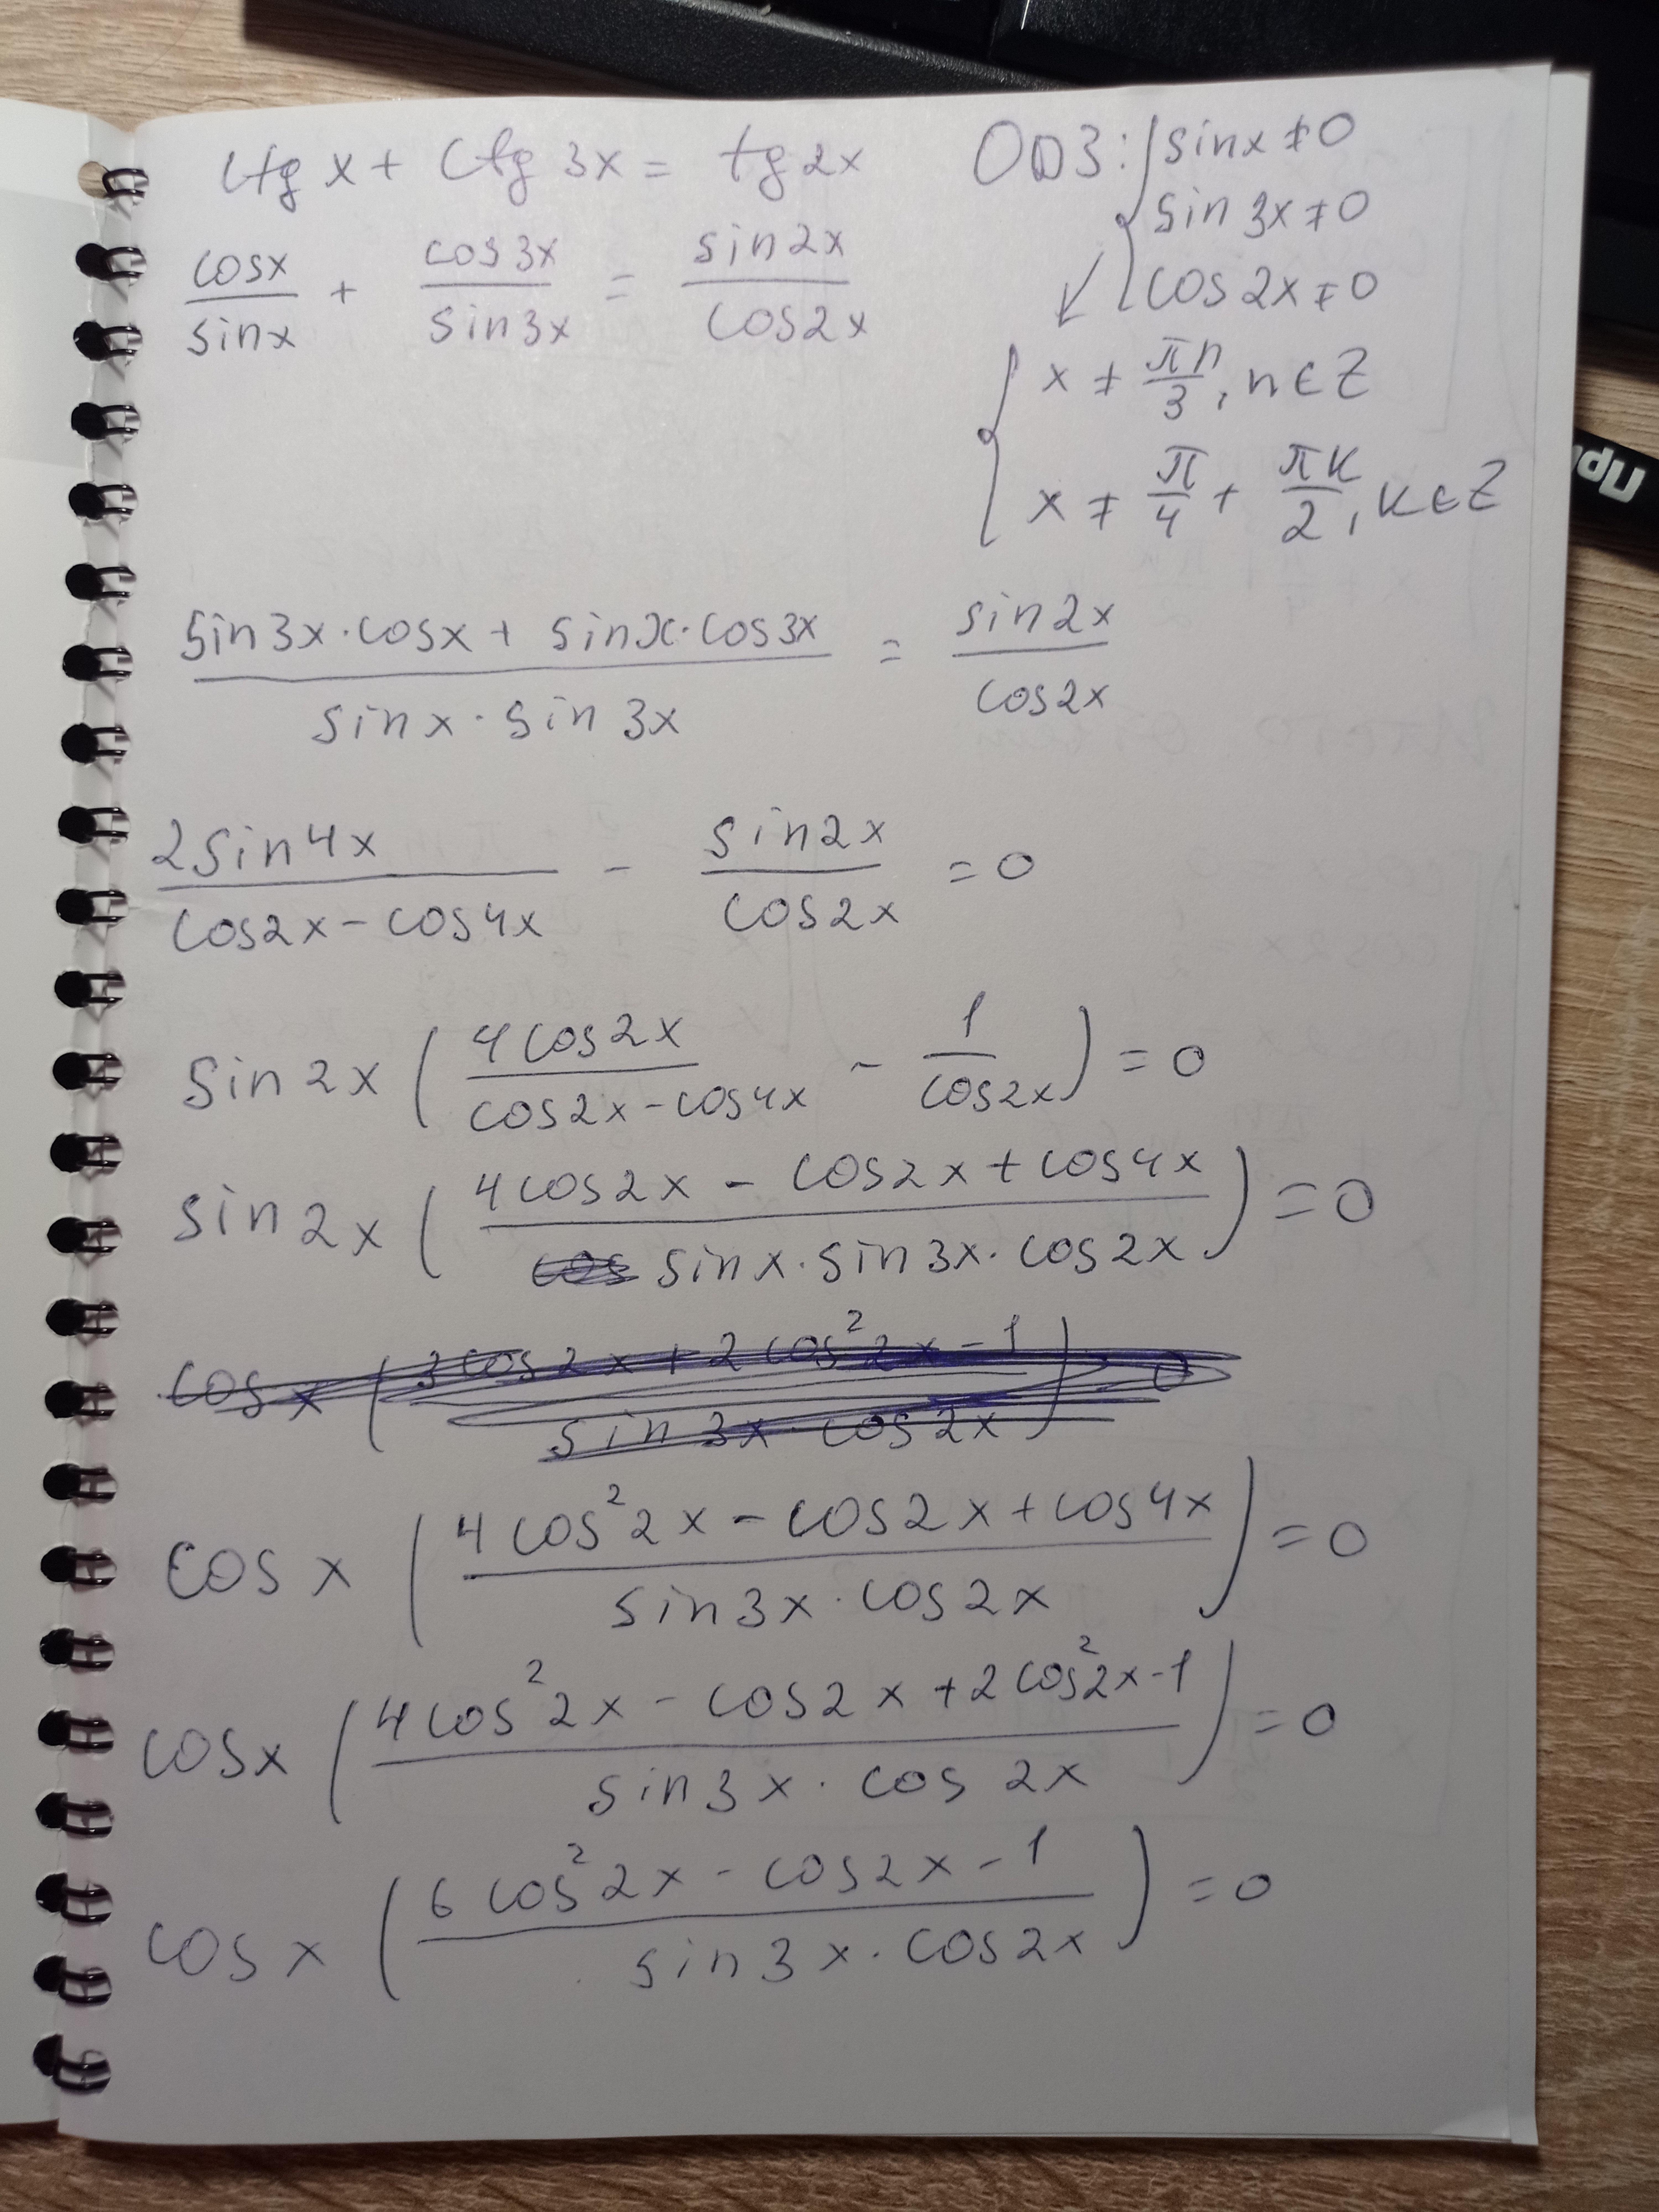 ctg x + ctg 3x = tg 2x
ОДЗ: { sinx ≠ 0
sin 3x ≠ 0
cos 2x ≠ 0
cosx/sinx + cos3x/sin3x = sin2x/cos2x
{ x ≠ πn/3, n ∈ Z
x ≠ π/4 + πk/2, k ∈ Z
(sin3x · cosx + sinx · cos3x)/(sinx · sin3x) = sin2x/cos2x
2sin4x/(cos2x - cos4x) - sin2x/cos2x = 0
sin2x (4cos2x/(cos2x - cos4x) - 1/cos2x) = 0
sin2x ((4cos2x - cos2x + cos4x)/(sinx · sin3x · cos2x)) = 0
cosx ((3cos2x + 2cos²2x - 1)/(sin3x · cos2x)) = 0
cosx ((4cos²2x - cos2x + cos4x)/(sin3x · cos2x)) = 0
cosx ((4cos²2x - cos2x + 2cos²2x - 1)/(sin3x · cos2x)) = 0
cosx ((6cos²2x - cos2x - 1)/(sin3x · cos2x)) = 0